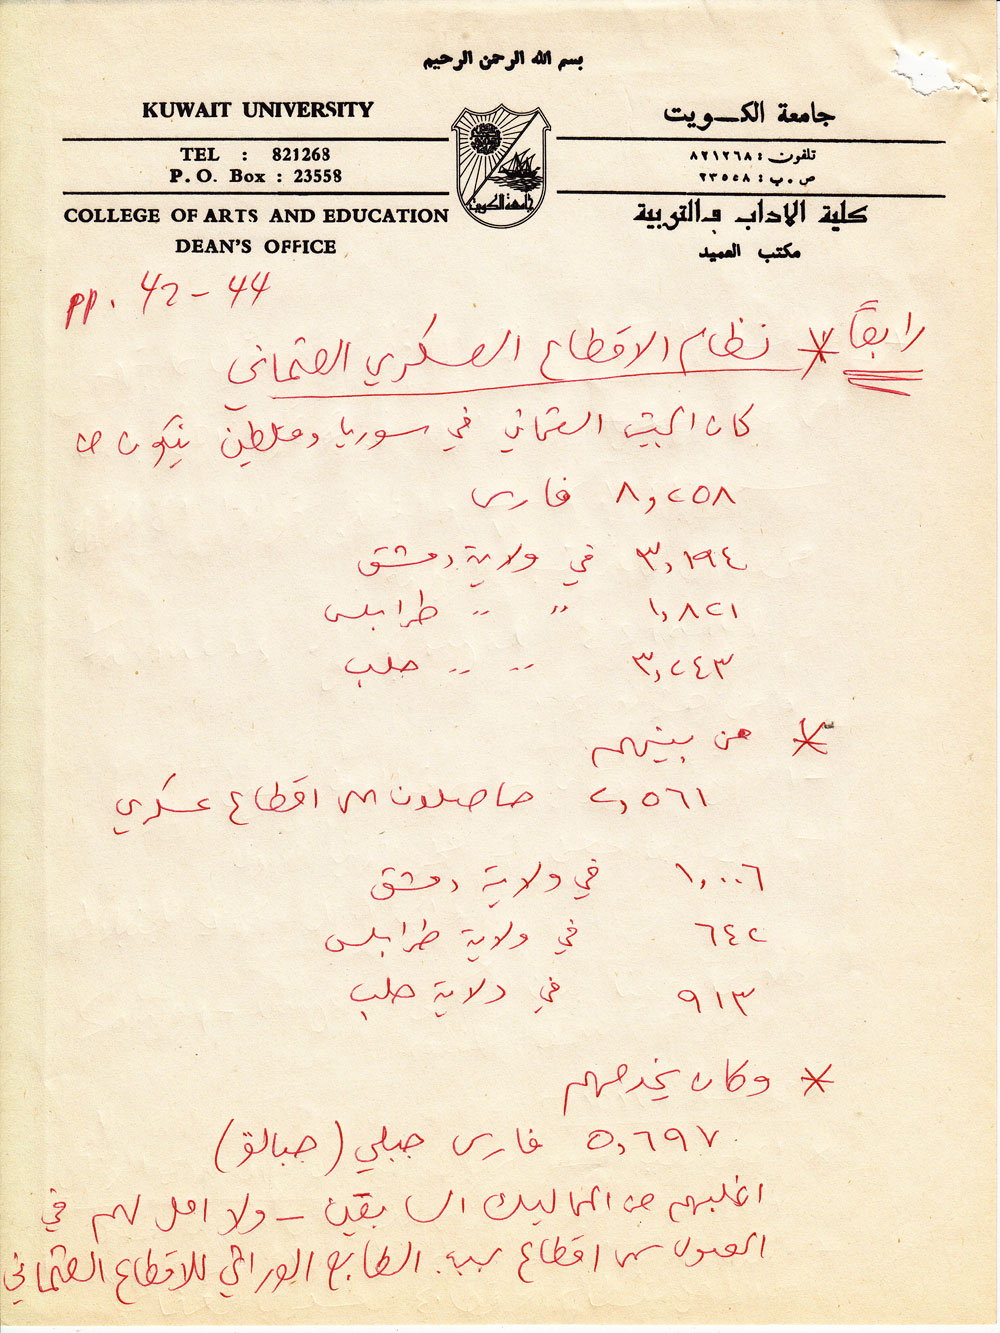 بسم الله الرحمن الرحيم
KUWAIT UNIVERSITY
TEL : 821268
P. O. Box : 23558
COLLEGE OF ARTS AND EDUCATION
DEAN'S OFFICE
جامعة الكويت
تلفون : ٨٢١٢٦٨
ص . ب : ٢٣٥٥٨
كلية الاداب والتربية
مكتب العميد
جامعة الكويت
pp. 42-44
رابعاً * نظام الاقطاع العسكري العثماني
كان الجيش العثماني في سوريا وفلسطين يتكون من
٨,٢٥٨ فارس
٣,١٩٤ في ولاية دمشق
١,٨٢١ " " طرابلس
٣,٢٤٣ " " حلب
* من بينهم
٢,٥٦١ حاصلون على اقطاع عسكري
١,٠٠٦ في ولاية دمشق
٦٤٢ في ولاية طرابلس
٩١٣ في ولاية حلب
* وكان يخدمهم
٥,٦٩٧ فارس جبلي (جبالق)
اغلبهم من المماليك السابقين - ولا امل لهم في
الحصول على اقطاع بسبب الطابع الوراثي للاقطاع العثماني